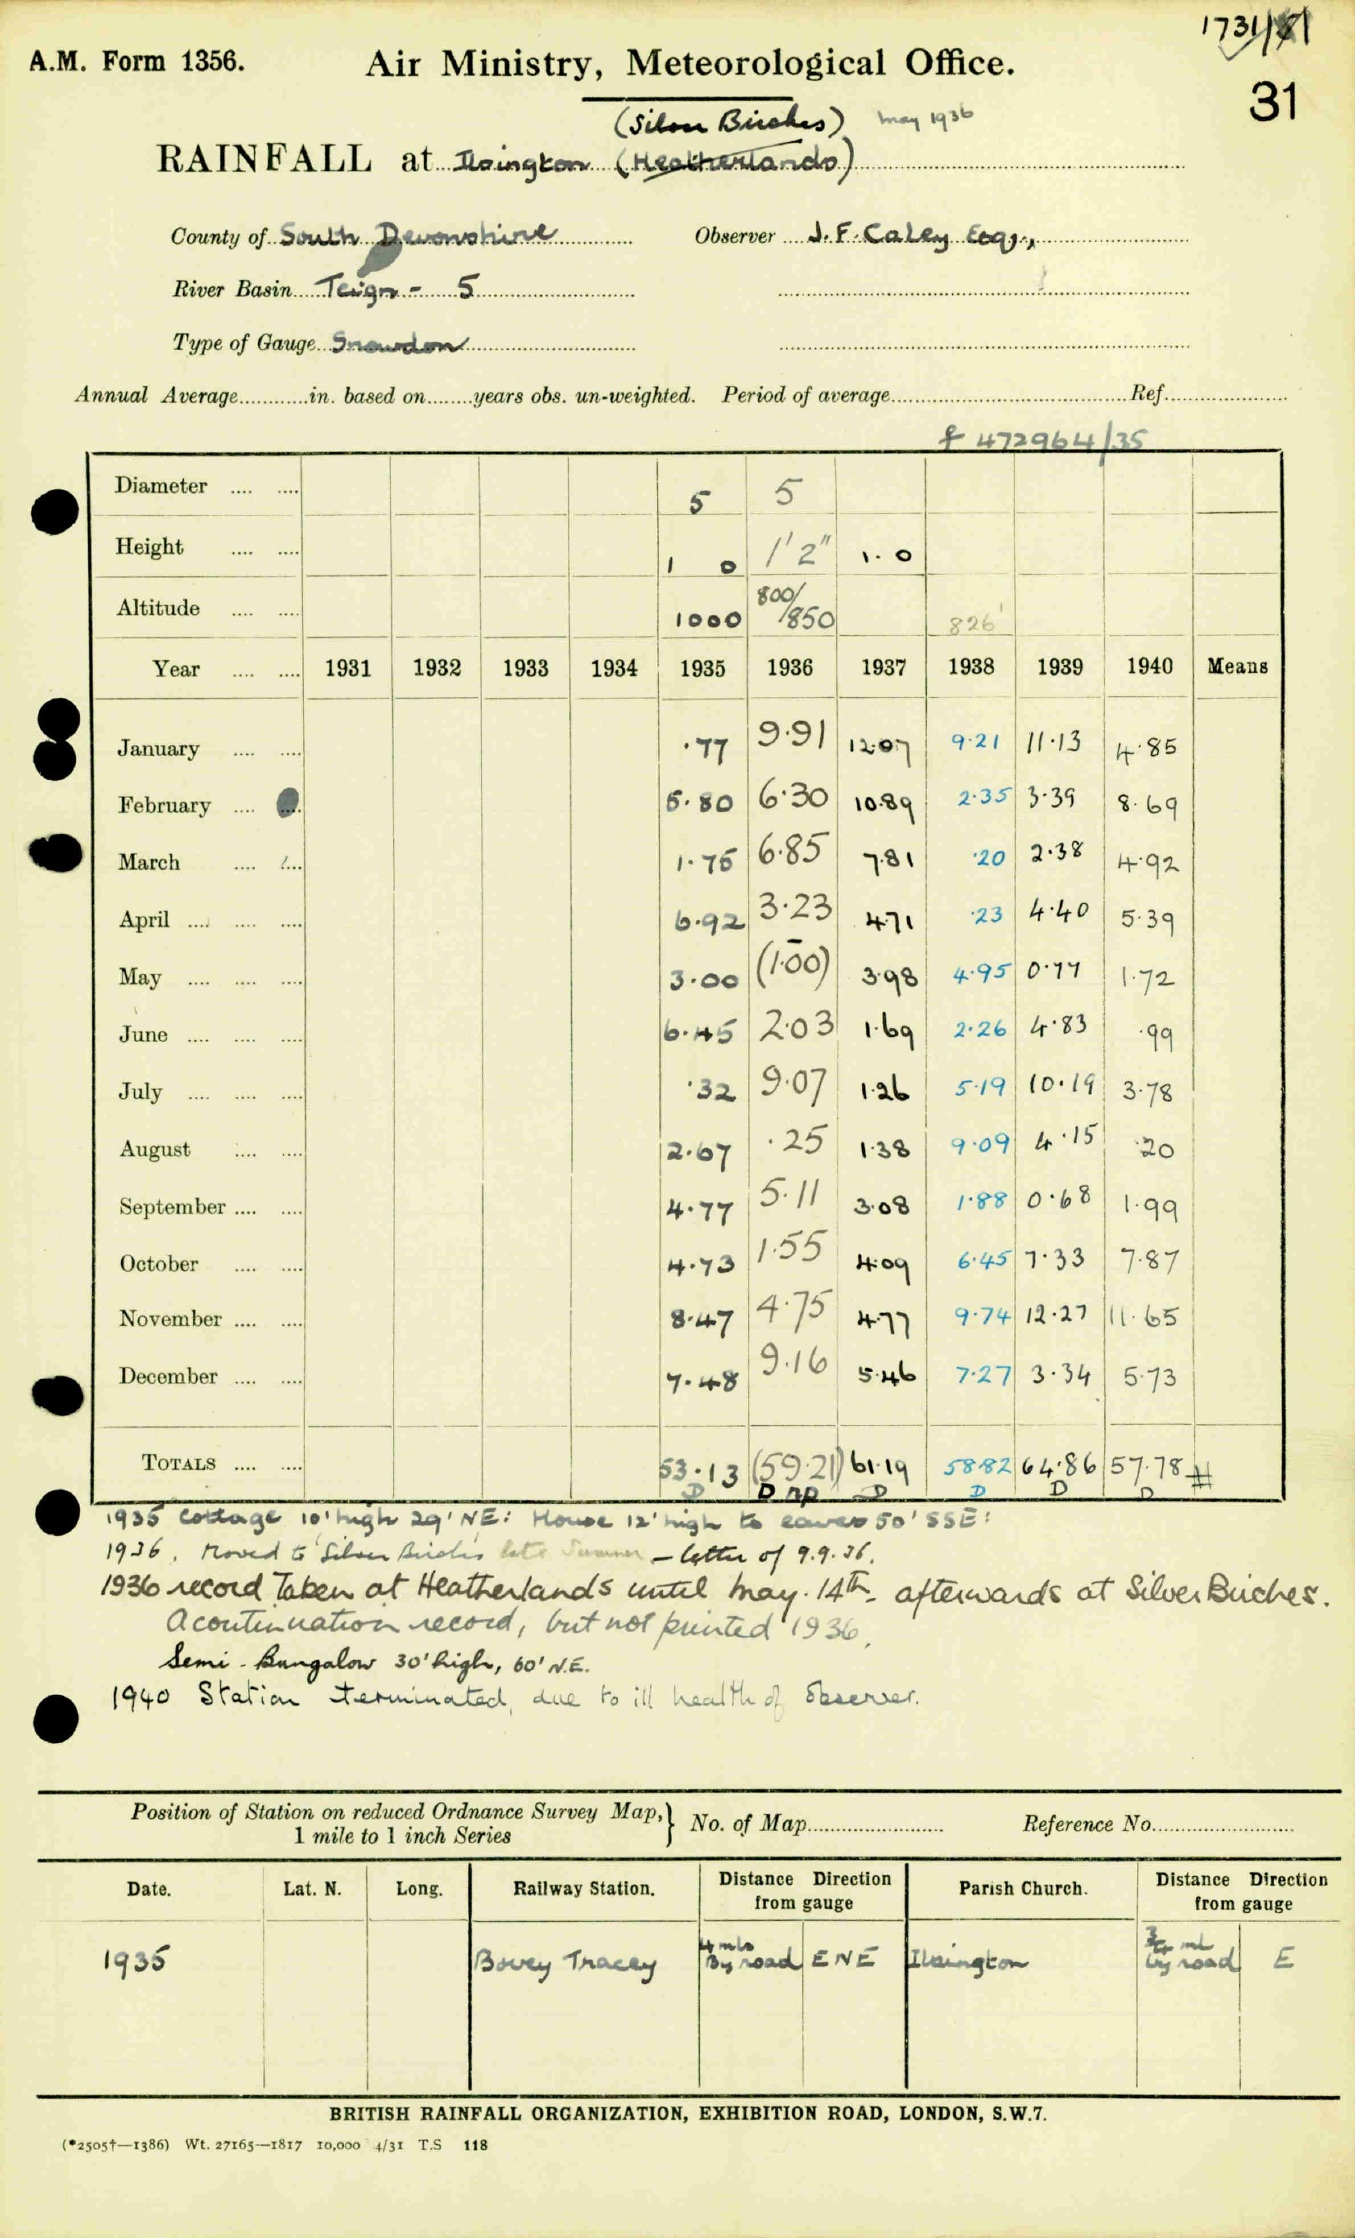 1731/
A.M. Form 1356. Air Ministry, Meteorological Office.
31
(Silver Birches) May 1936
RAINFALL at Ilsington (Heatherlands)
County of South Devonshire Observer J. F. Caley Esq.,
River Basin Teign - 5
Type of Gauge Snowdon
Annual Average............in. based on........years obs. un-weighted. Period of average.................... Ref....................
472964/35
Diameter .... .... 5 5
Height .... .... 1 0 1' 2" 1. 0
Altitude .... .... 1000 800/850 826'
Year .... .... 1931 1932 1933 1934 1935 1936 1937 1938 1939 1940 Means
January .... .... ·77 9·91 12·07 9·21 11·13 4·85
February .... .... 5·80 6·30 10·89 2·35 3·39 8·69
March .... .... 1·75 6·85 7·81 ·20 2·38 4·92
April .... .... .... 6·92 3·23 4·71 ·23 4·40 5·39
May .... .... .... 3·00 (1·00) 3·98 4·95 0·77 1·72
June .... .... .... 6·45 2·03 1·69 2·26 4·83 ·99
July .... .... .... ·32 9·07 1·26 5·19 10·19 3·78
August .... .... 2·67 ·25 1·38 9·09 4·15 ·20
September .... .... 4·77 5·11 3·08 1·88 0·68 1·99
October .... .... 4·73 1·55 4·09 6·45 7·33 7·87
November .... .... 8·47 4·75 4·77 9·74 12·27 11·65
December .... .... 7·48 9·16 5·46 7·27 3·34 5·73
TOTALS .... .... 53·13 (59·21) 61·19 58·82 64·86 57·78 #
D D np D D D D
1935 Cottage 10' high 29' NE: House 12' high to eaves 50' SSE:
1936. Moved to Silver Birches late Summer - letter of 9.9.36.
1936 record taken at Heatherlands until May. 14th. afterwards at Silver Birches.
A continuation record, but not printed 1936.
Semi-Bungalow 30' high, 60' N.E.
1940 Station terminated, due to ill health of observer.
Position of Station on reduced Ordnance Survey Map, } No. of Map.................... Reference No....................
1 mile to 1 inch Series
Date. Lat. N. Long. Railway Station. Distance Direction from gauge Parish Church. Distance Direction from gauge
1935 Bovey Tracey 4 mls By road ENE Ilsington 3/4 ml by road E
BRITISH RAINFALL ORGANIZATION, EXHIBITION ROAD, LONDON, S.W.7.
(*2505†—1386) Wt. 27165—1817 10,000 4/31 T.S 118